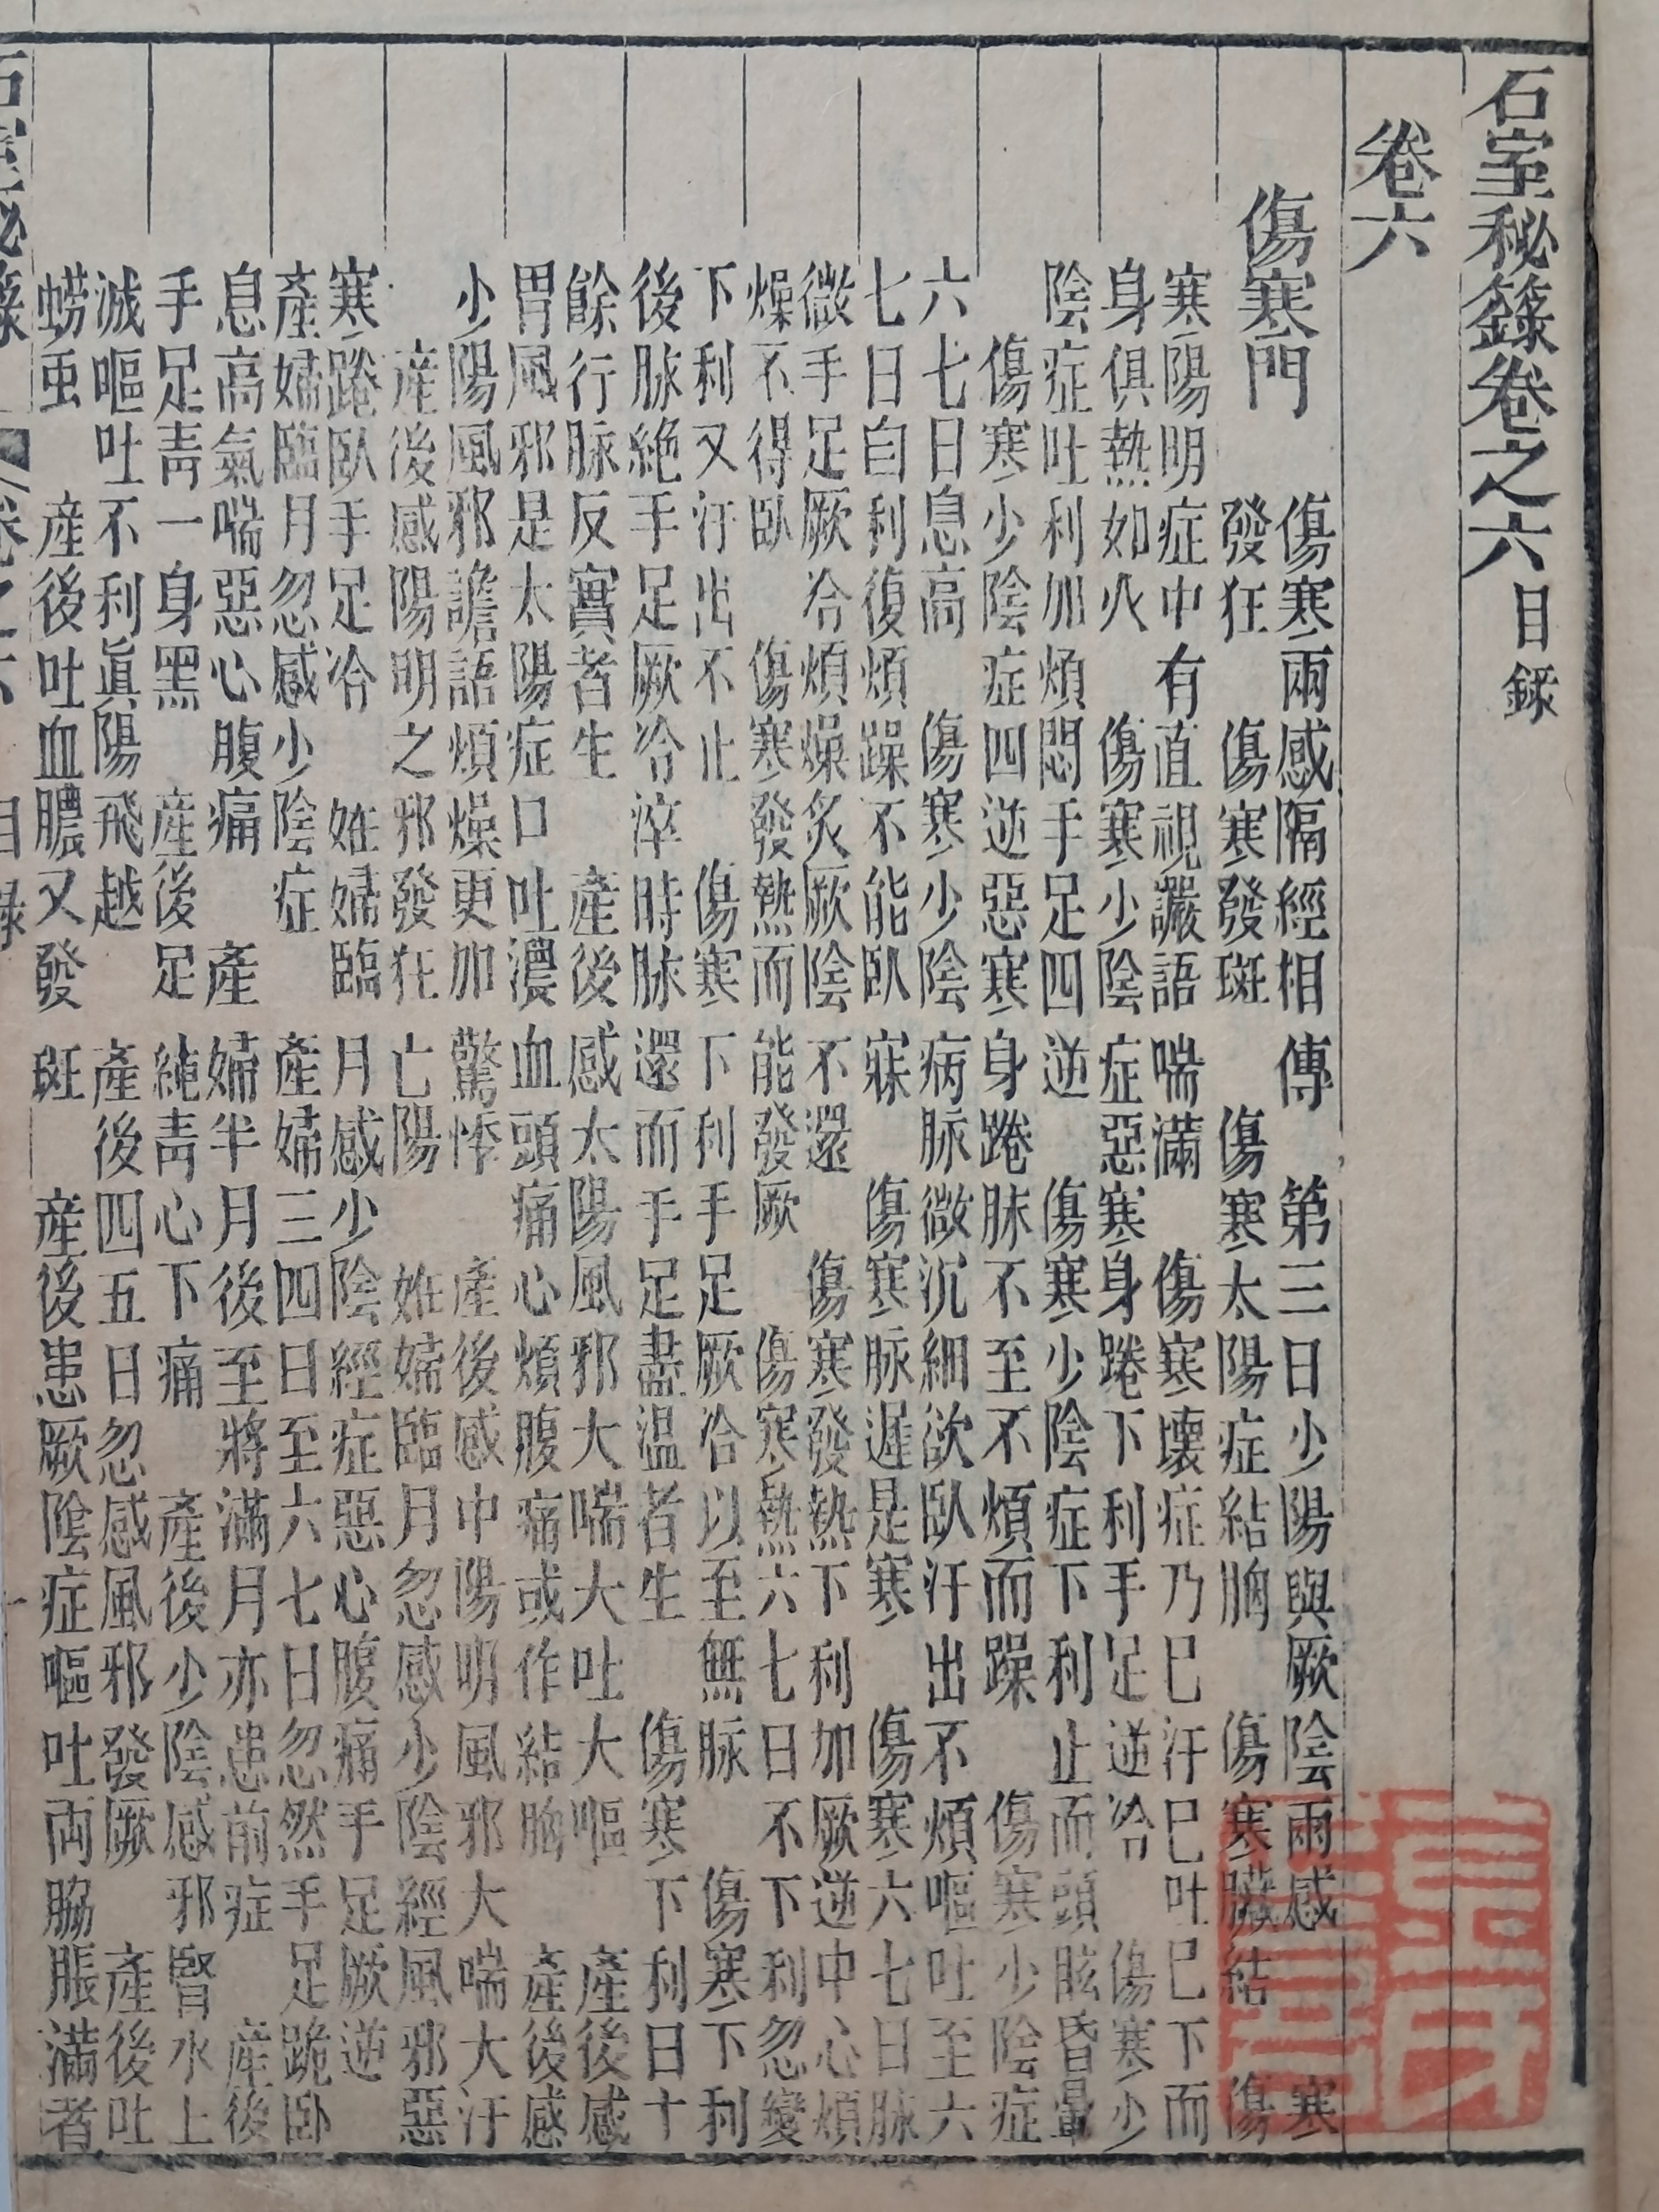 石室秘籙卷之六目錄
卷六
傷寒門
傷寒兩感隔經相傳　第三日少陽與厥陰兩感　寒
發狂　傷寒發斑　傷寒太陽症結胸　傷寒臟結　傷
寒陽明症中有直視讝語喘滿　傷寒壞症乃已汗已吐已下而
身俱熱如火　傷寒少陰症惡寒身踡下利手足逆冷　傷寒少
陰症吐利加煩悶手足四逆　傷寒少陰症下利止而頭眩昏暈
傷寒少陰症四逆惡寒身踡脉不至不煩而躁　傷寒少陰症
六七日息高　傷寒少陰病脉微沉細欲臥汗出不煩嘔吐至六
七日自利復煩躁不能臥寐　傷寒脉遲是寒　傷寒六七日脉
微手足厥冷煩燥炙厥陰不還　傷寒發熱下利加厥逆中心煩
燥不得臥　傷寒發熱而能發厥　傷寒熱六七日不下利忽變
下利又汗出不止　傷寒下利手足厥冷以至無脉　傷寒下利
後脉絶手足厥冷淬時脉還而手足盡温者生　傷寒下利日十
餘行脉反實者生　產後感太陽風邪大喘大吐大嘔　產後感
胃風邪是太陽症口吐濃血頭痛心煩腹痛或作結胸　產後感
少陽風邪譫語煩燥更加驚悸　產後感中陽明風邪大喘大汗
產後感陽明之邪發狂亡陽　姙婦臨月忽感少陰經風邪惡
寒踡臥手足冷　姙婦臨月感少陰經症惡心腹痛手足厥逆
產婦臨月忽感少陰症　產婦三四日至六七日忽然手足踡卧
息高氣喘惡心腹痛　產婦半月後至將滿月亦患前症　產後
手足青一身黑　產後足純青心下痛　產後少陰感邪腎水上
滅嘔吐不利眞陽飛越　產後四五日忽感風邪發厥　產後吐
虫　產後吐血膿又發斑　產後患厥陰症嘔吐両脇脹滿者
石室秘籙　卷之六　目錄　一